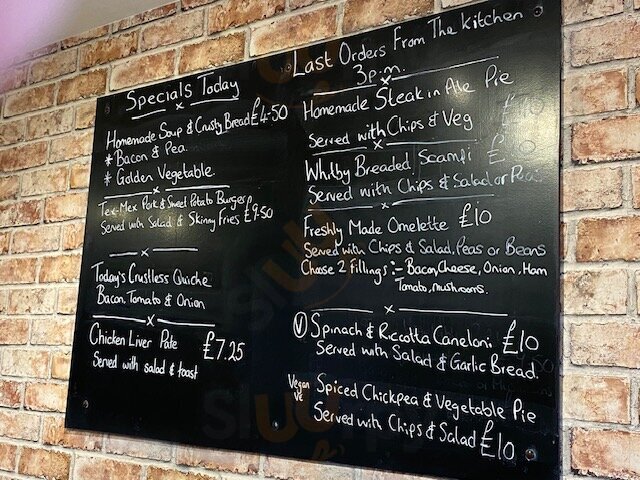 Specials Today
Homemade Soup & Crusty Bread £4.50
* Bacon & Pea
* Golden Vegetable
Tex-Mex Pork & Sweet Potato Burger
Served with Salad & Skinny Fries £9.50
Today's Crustless Quiche
Bacon, Tomato & Onion
Chicken Liver Pate £7.25
Served with salad & toast
Last Orders From The Kitchen
3p.m.
Homemade Steak in Ale Pie
Served with Chips & Veg £10
Whitby Breaded Scampi £
Served with Chips & Salad or Peas
Freshly Made Omelette £10
Served with Chips & Salad, Peas or Beans
Choose 2 Fillings :- Bacon, Cheese, Onion, Ham
Tomato, Mushrooms.
V Spinach & Riccotta Caneloni £10
Served with Salad & Garlic Bread.
Vegan VE Spiced Chickpea & Vegetable Pie
Served with Chips & Salad £10